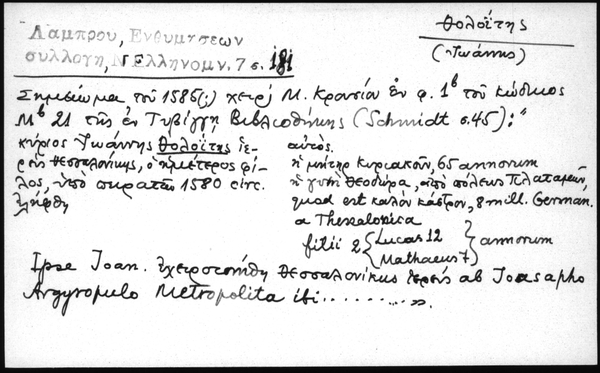 Θολοΐτης
(Ἰωάννης)
Λάμπρου, Ἐνθυμήσεων
συλλογή, Ν Ἑλληνομν. 7 σ. 181
Σημείωμα τοῦ 1585(;) χειρὶ Μ. Κρουσίου ἐν φ. 1β τοῦ κώδικος
Mb 21 τῆς ἐν Τυβίγγῃ Βιβλιοθήκης (Schmidt σ. 45): "
κύριος Ἰωάννης Θολοΐτης ἱε-
ρεὺς Θεσσαλονίκης, ὁ ἡμέτερος φί-
λος, ὑπὸ πειρατῶν 1580 circ.
ἐλήφθη
αὐτός.
ἡ μήτηρ Κυριακοῦ, 65 annorum
ἡ γυνὴ Θεοδώρα, ἀπὸ πόλεως Πλαταμών,
quod est καλὸν κάστρον, 8 mill. German.
a Thessalonica
filii 2 { Lucas 12
Mathaeus 7 } annorum
Ipse Ioan. ἐχειροτονήθη Θεσσαλονίκης ἱερεὺς ab Ioasapho
Argyropulo Metropolita ibi..........».